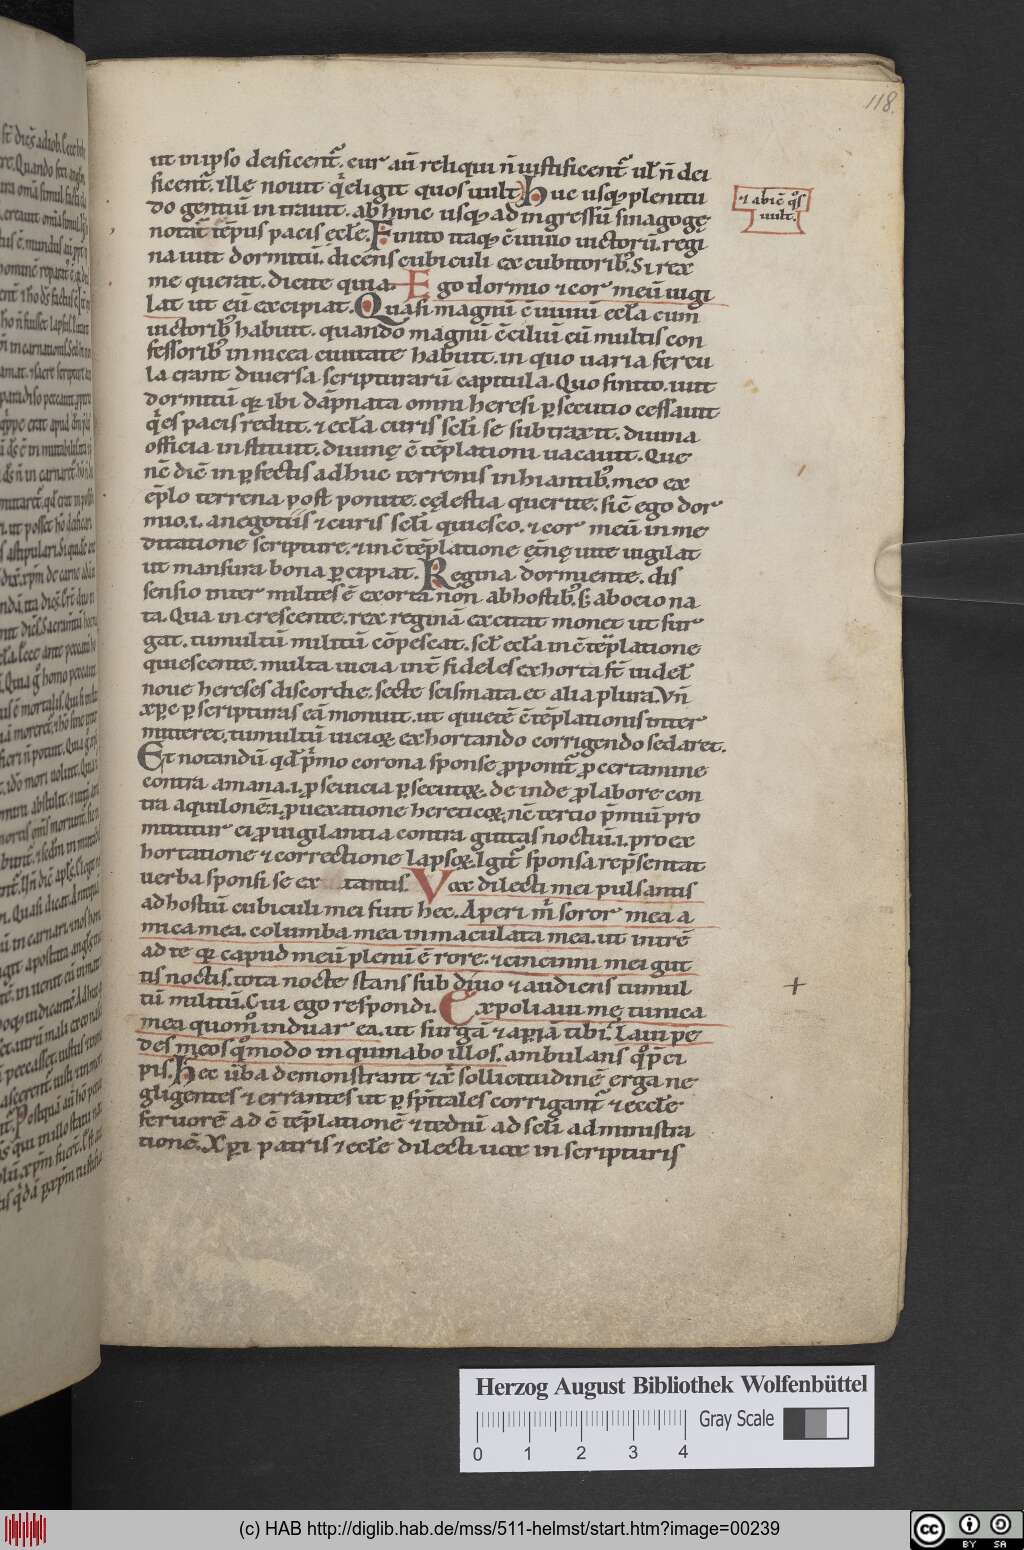 118.
ut in ipso deificent᷑. cur aū reliqui n̄ iustificent᷑ ul̄ n̄ dei
ficent᷑. ille nouit q̇ eligit quos uult. Huc usq; plenitu
do gentiū intrauit. ab hinc usq; ad ingressū sinagogę
notat᷑ tēpus pacis eccl̄e. Finito itaq; ꝯuiuio uictorū. regi
na iuit dormitū. dicens cubiculi excubitorib;. Si rex
me querat. dicite quia. Ego dormio ⁊ cor meū uigi
lat ut eū excipiat. Quasi magnū ꝯuiuiū eccl̄a cum
uictorib; habuit. quando magnū ꝯciliū cū multis con
fessorib; in nicea ciuitate habuit. in quo uaria fercu
la erant diuersa scripturarū capitula. Quo finito. iuit
dormitū quia ibi dāpnata omni heresi ꝑsecutio cessauit
q̇es pacis rediit. ⁊ eccl̄a curis scl̄i se subtraxit. diuina
officia instituit. diuinę ꝯtēplationi uacauit. Que
nc̄ dic̄ inꝑfectis adhuc terrenis inhiantib;. meo ex
ēplo terrena postponite. cęlestia querite. sic̄ ego dor
mio .i. a negotiis ⁊ curis scl̄i quiesco. ⁊ cor meū in me
ditatione scripture. ⁊ in ꝯtēplatione ęt̄nę uite uigilat
ut mansura bona ꝑcipiat. Regina dormiente. dis
sensio inter milites ē exorta non ab hostib;. s; ab ocio na
ta. Qua increscente. rex reginā excitat monet ut sur
gat. tumultū militū cōpescat. scl̄ eccl̄a in ꝯtēplatione
quiescente. multa uicia int̄ fideles exhorta st̄ uidel̄
noue hereses discordie. secte scismata. et alia plura. Vn̄
xp̄c ꝑ scripturas eā monuit. ut quietē ꝯtēplationis inter
mitteret. tumultū uicioꝝ exhortando corrigendo sedaret.
Et notandū qd̄ p̄mo corona sponse ꝓponit᷑ ꝓ certamine
contra amana .i. ꝓ seuicia ꝑsecutoꝝ. deinde ꝓ labore con
tra aquilonē .i. ꝓ uexatione hereticoꝝ. nc̄ tercio p̄miū pro
mittitur ei ꝓ uigilantia contra guttas noctiū .i. pro ex
hortatione ⁊ correctione lapsoꝝ. Igit᷑ sponsa rep̄sentat
uerba sponsi se ex tantis. Vox dilecti mei pulsantis
ad hostiū cubiculi mei fuit hec. Aperi m̄ soror mea a
mica mea. columba mea inmaculata mea. ut intrē
ad te quia capud meū plenū ē rore. ⁊ cincinni mei gut
tis noctis. tota nocte stans sub diuo ⁊ audiens tumul
tū militū. Cui ego respondi. Expoliaui mę tunica
mea quom̊ induar ea. ut surgā ⁊ aꝑiā tibi. Laui pe
des meos q̊modo inquinabo illos. ambulans q̊ p̄ci
pis. Hec ūba demonstrant ⁊ xp̄i sollicitudinē erga ne
gligentes ⁊ errantes ut ꝑ sp̄itales corrigant᷑ ⁊ eccl̄e
feruorē ad ꝯtēplationē ⁊ tediū ad scl̄i administra
tionē. Xp̄i patris ⁊ eccl̄e dilecti uox in scripturis
⁊ abic̄ q̊s
uult.
Herzog August Bibliothek Wolfenbüttel
Gray Scale
0 1 2 3 4
(c) HAB http://diglib.hab.de/mss/511-helmst/start.htm?image=00239
cc BY SA